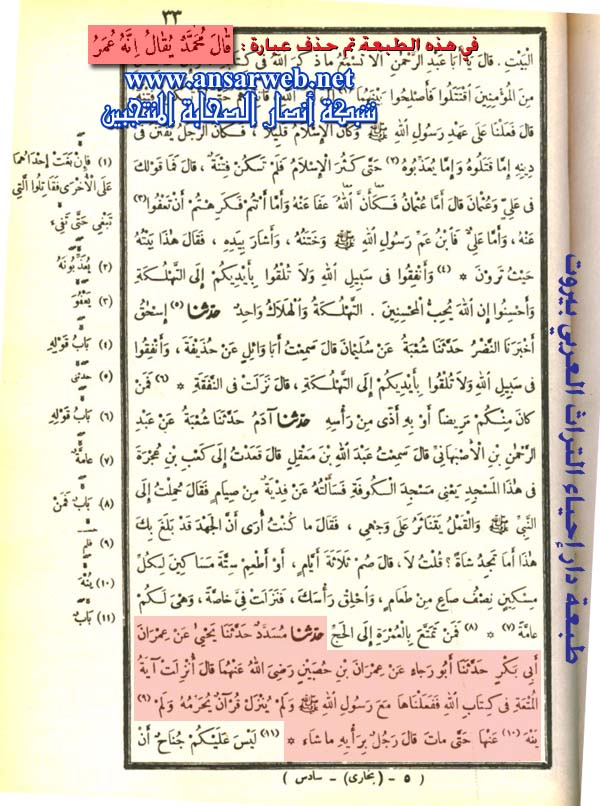 ٣٣
في هذه الطبعة تم حذف عبارة : قَالَ مُحَمَّدٌ يُقَالُ إِنَّهُ عُمَرُ
الْبَيْتِ . قَالَ يَا أَبَا عَبْدِ الرَّحْمٰنِ أَلَا تَسْمَعُ مَا ذَكَرَ اللهُ فِى كِتَابِهِ
www.ansarweb.net
مِنَ الْمُؤْمِنِينَ اقْتَتَلُوا فَأَصْلِحُوا بَيْنَهُمَا
شبكة أنصار الصحابة المنتجبين
قَالَ فَعَلْنَا عَلَى عَهْدِ رَسُولِ اللهِ ﷺ وَكَانَ الْإِسْلَامُ قَلِيلًا ، فَكَانَ الرَّجُلُ يُفْتَنُ فِى
دِينِهِ إِمَّا قَتَلُوهُ وَإِمَّا يُعَذِّبُوهُ (٢) حَتَّى كَثُرَ الْإِسْلَامُ فَلَمْ تَكُنْ فِتْنَةٌ ، قَالَ فَمَا قَوْلُكَ
فِى عَلِيٍّ وَعُثْمَانَ قَالَ أَمَّا عُثْمَانُ فَكَأَنَّ اللهُ عَفَا عَنْهُ وَأَمَّا أَنْتُمْ فَكَرِهْتُمْ أَنْ تَعْفُوا (٣)
عَنْهُ ، وَأَمَّا عَلِيٌّ فَابْنُ عَمِّ رَسُولِ اللهِ ﷺ وَخَتَنُهُ ، وَأَشَارَ بِيَدِهِ ، فَقَالَ هٰذَا بَيْتُهُ
حَيْثُ تَرَوْنَ * (٤) وَأَنْفِقُوا فِى سَبِيلِ اللهِ وَلَا تُلْقُوا بِأَيْدِيكُمْ إِلَى التَّهْلُكَةِ
وَأَحْسِنُوا إِنَّ اللهَ يُحِبُّ الْمُحْسِنِينَ . التَّهْلُكَةُ وَالْهَلَاكُ وَاحِدٌ حَدَّثَنَا (٥) إِسْحٰقُ
أَخْبَرَنَا النَّضْرُ حَدَّثَنَا شُعْبَةُ عَنْ سُلَيْمَانَ قَالَ سَمِعْتُ أَبَا وَائِلٍ عَنْ حُذَيْفَةَ ، وَأَنْفِقُوا
فِى سَبِيلِ اللهِ وَلَا تُلْقُوا بِأَيْدِيكُمْ إِلَى التَّهْلُكَةِ ، قَالَ نَزَلَتْ فِى النَّفَقَةِ * (٦) فَمَنْ
كَانَ مِنْكُمْ مَرِيضًا أَوْ بِهِ أَذًى مِنْ رَأْسِهِ حَدَّثَنَا آدَمُ حَدَّثَنَا شُعْبَةُ عَنْ عَبْدِ
الرَّحْمٰنِ بْنِ الْأَصْبَهَانِيِّ قَالَ سَمِعْتُ عَبْدَ اللهِ بْنَ مَعْقِلٍ قَالَ قَعَدْتُ إِلَى كَعْبِ بْنِ عُجْرَةَ
فِى هٰذَا الْمَسْجِدِ يَعْنِى مَسْجِدَ الْكُوفَةِ فَسَأَلْتُهُ عَنْ فِدْيَةٌ مِنْ صِيَامٍ فَقَالَ حُمِلْتُ إِلَى
النَّبِيِّ ﷺ وَالْقَمْلُ يَتَنَاثَرُ عَلَى وَجْهِى ، فَقَالَ مَا كُنْتُ أُرَى أَنَّ الْجَهْدَ قَدْ بَلَغَ بِكَ
هٰذَا أَمَا تَجِدُ شَاةً ؟ قُلْتُ لَا ، قَالَ صُمْ ثَلَاثَةَ أَيَّامٍ ، أَوْ أَطْعِمْ سِتَّةَ مَسَاكِينَ لِكُلِّ
مِسْكِينٍ نِصْفُ صَاعٍ مِنْ طَعَامٍ ، وَاحْلِقْ رَأْسَكَ ، فَنَزَلَتْ فِيَّ خَاصَّةً ، وَهِىَ لَكُمْ
عَامَّةً (٧) * (٨) فَمَنْ تَمَتَّعَ بِالْعُمْرَةِ إِلَى الْحَجِّ حَدَّثَنَا مُسَدَّدٌ حَدَّثَنَا يَحْيٰى عَنْ عِمْرَانَ
أَبِى بَكْرٍ حَدَّثَنَا أَبُو رَجَاءٍ عَنْ عِمْرَانَ بْنِ حُصَيْنٍ رَضِىَ اللهُ عَنْهُمَا قَالَ أُنْزِلَتْ آيَةُ
الْمُتْعَةِ فِى كِتَابِ اللهِ فَفَعَلْنَاهَا مَعَ رَسُولِ اللهِ ﷺ وَلَمْ يُنْزَلْ قُرْآنٌ يُحَرِّمُهُ وَلَمْ (٩)
يَنْهَ (١٠) عَنْهَا حَتَّى مَاتَ قَالَ رَجُلٌ بِرَأْيِهِ مَا شَاءَ * (١١) لَيْسَ عَلَيْكُمْ جُنَاحٌ أَنْ
( ٥ - بخارى) - سادس )
(١) فَإِنْ بَغَتْ إِحْدَاهُمَا
عَلَى الْأُخْرَى فَقَاتِلُوا الَّتِى
تَبْغِى حَتَّى تَفِىءَ
(٢) يُعَذِّبُونَهُ
(٣) يَعْفُوَ
(٤) بَابُ قَوْلِهِ
(٥) حدثنى
(٦) بَابُ قَوْلِهِ
(٧) عامَّةً
(٨) بَابُ فَمَنْ
(٩) فلم
(١٠) يُنْهَ
(١١) بَابُ
طبعة دار إحياء التراث العربي بيروت